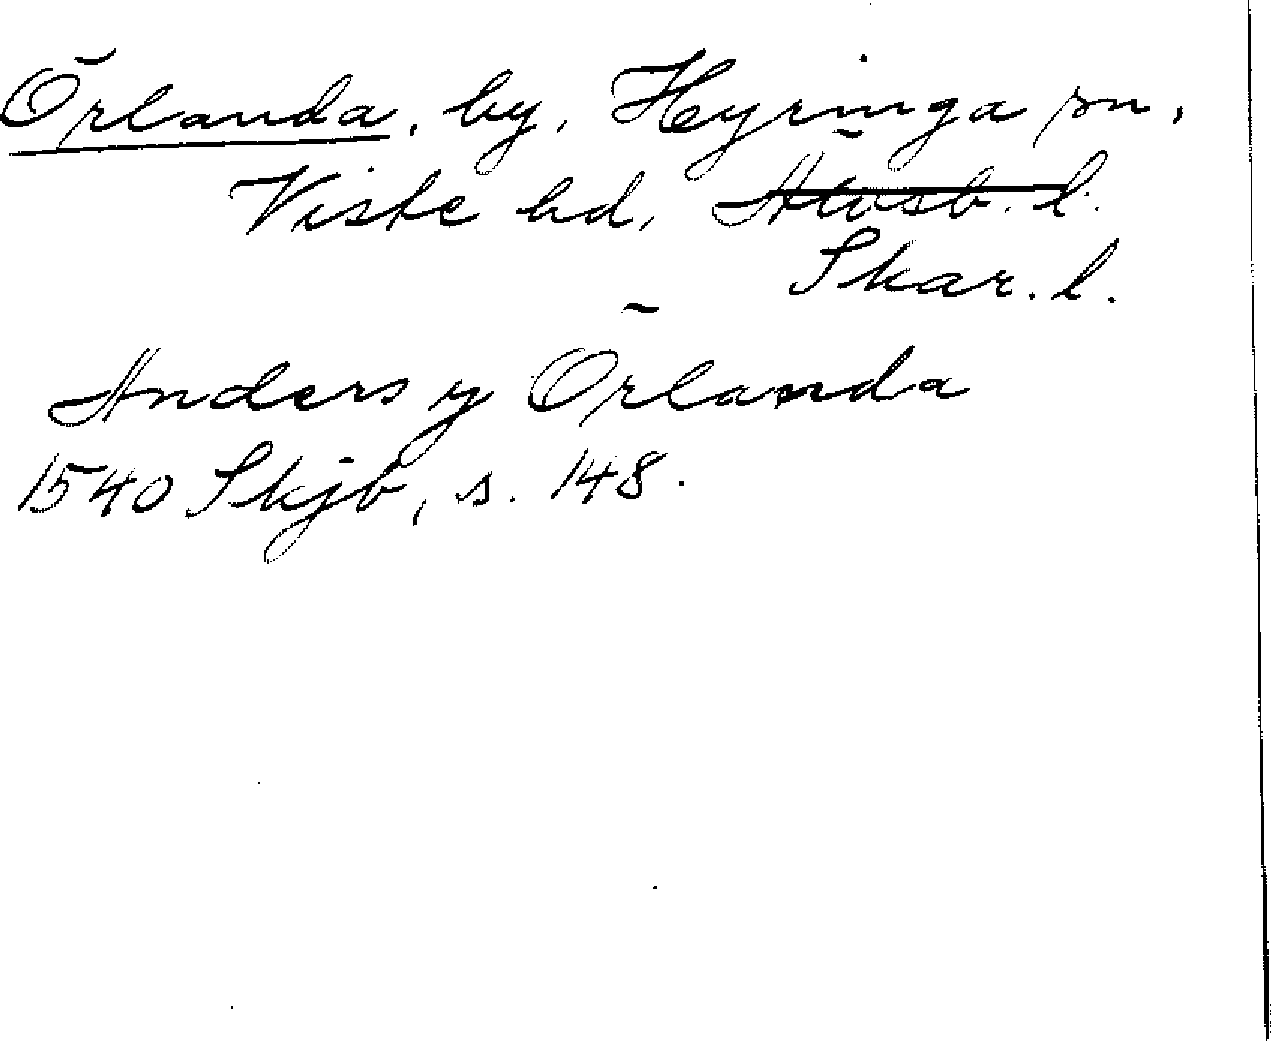 Örlanda, by, Hyringa sn,
Viste hd, Älvsb. l.
Skar. l.
Anders y Örlanda
1540 Skjb, s. 148.